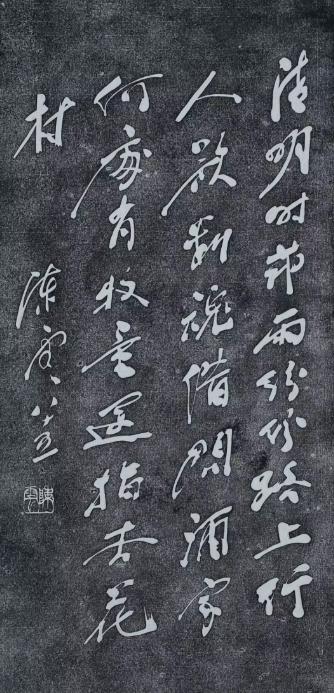 清明时节雨纷纷路上行
人欲断魂借問酒家
何處有牧童遥指杏花
村
陈雲
陳雲